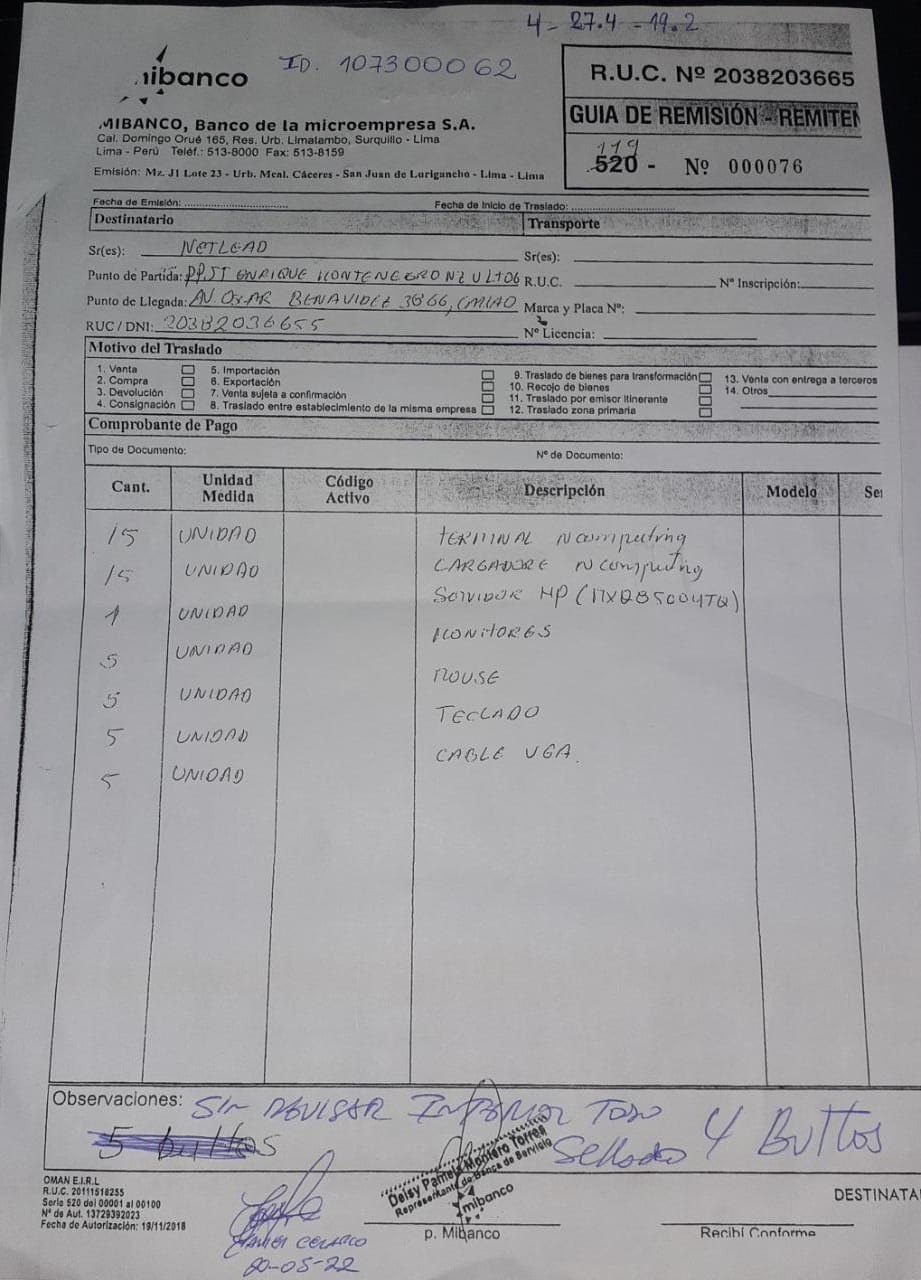 4 - 27.4 - 19.2
mibanco
ID. 107300062
R.U.C. Nº 2038203665
MIBANCO, Banco de la microempresa S.A.
Cal. Domingo Orué 165, Res. Urb. Limatambo, Surquillo - Lima
Lima - Perú Teléf.: 513-8000 Fax: 513-8159
GUIA DE REMISIÓN - REMITEN
119
520 - Nº 000076
Emisión: Mz. J1 Lote 23 - Urb. Mcal. Cáceres - San Juan de Lurigancho - Lima - Lima
Fecha de Emisión: Fecha de Inicio de Traslado:
Destinatario Transporte
Sr(es): NETLEAD Sr(es):
Punto de Partida: PP.JJ ENRIQUE MONTENEGRO NZ U LT06 R.U.C. Nº Inscripción:
Punto de Llegada: AV. OSCAR BENAVIDEZ 3866, CALLAO Marca y Placa Nº:
RUC / DNI: 20382036655 Nº Licencia:
Motivo del Traslado
1. Venta 5. Importación 9. Traslado de bienes para transformación 13. Venta con entrega a terceros
2. Compra 6. Exportación 10. Recojo de bienes 14. Otros
3. Devolución 7. Venta sujeta a confirmación 11. Traslado por emisor itinerante
4. Consignación 8. Traslado entre establecimiento de la misma empresa 12. Traslado zona primaria
Comprobante de Pago
Tipo de Documento: Nº de Documento:
Cant. Unidad Medida Código Activo Descripción Modelo Ser
15 UNIDAD TERMINAL Ncomputing
15 UNIDAD CARGADORE Ncomputing
1 UNIDAD SERVIDOR HP (MXQ85004TQ)
5 UNIDAD MONITORES
5 UNIDAD MOUSE
5 UNIDAD TECLADO
5 UNIDAD CABLE VGA.
Observaciones: SIN REVISAR INTERIOR TODO
5 bultos Sellado 4 Bultos
Deisy Pamela Montero Torres
Representante de Banca de Servicio
mibanco
OMAN E.I.R.L
R.U.C. 20111518255
Serie 520 del 00001 al 00100
Nº de Aut. 13729392023
Fecha de Autorización: 19/11/2018
20-05-22
p. Mibanco
DESTINATA
Recibí Conforme